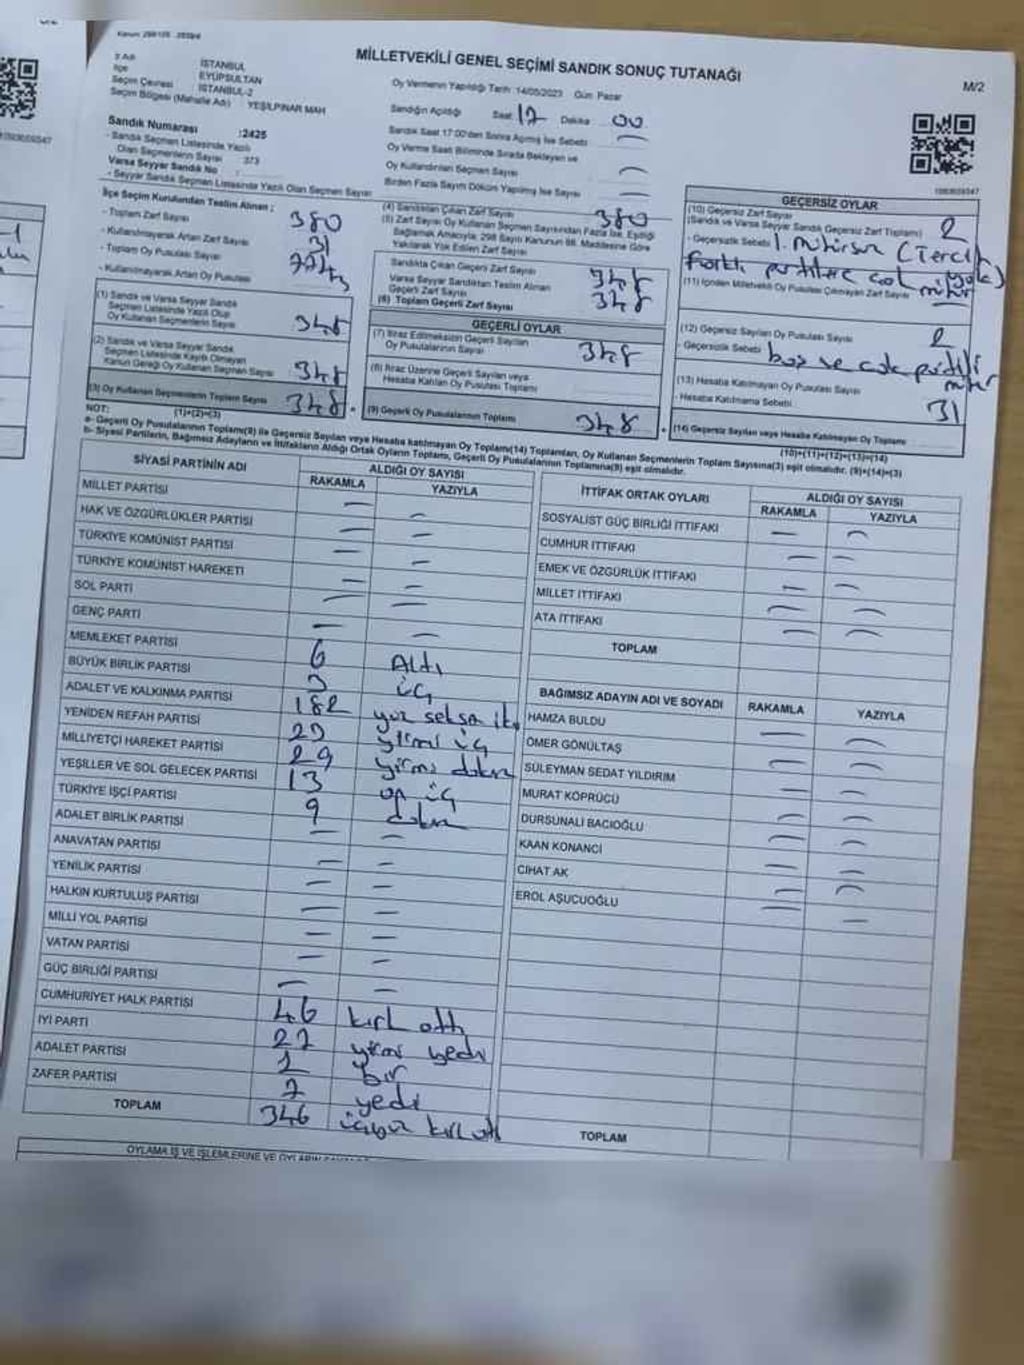 MİLLETVEKİLİ GENEL SEÇİMİ SANDIK SONUÇ TUTANAĞI
M/2
İSTANBUL
İlçe EYÜPSULTAN
Seçim Çevresi İSTANBUL-2
Seçim Bölgesi (Mahalle Adı) YEŞİLPINAR MAH
Oy Vermenin Yapıldığı Tarih :14/05/2023 Gün: Pazar
Sandığın Açıldığı Saat 17 Dakika 00
Sandık Saat 17:00'den Sonra Açılmış İse Sebebi —
Oy Verme Saati Bitiminde Sırada Bekleyen ve
Oy Kullandırılan Seçmen Sayısı —
Birden Fazla Sayım Döküm Yapılmış İse Sayısı —
Sandık Numarası :2425
- Sandık Seçmen Listesinde Yazılı
Olan Seçmenlerin Sayısı 373
Varsa Seyyar Sandık No :
- Seyyar Sandık Seçmen Listesinde Yazılı Olan Seçmen Sayısı
İlçe Seçim Kurulundan Teslim Alınan ;
- Toplam Zarf Sayısı 380
- Kullanılmayarak Artan Zarf Sayısı 31
- Toplam Oy Pusulası Sayısı
- Kullanılmayarak Artan Oy Pusulası
(1) Sandık ve Varsa Seyyar Sandık
Seçmen Listesinde Yazılı Olup
Oy Kullanan Seçmenlerin Sayısı 348
(2) Sandık ve Varsa Seyyar Sandık
Seçmen Listesinde Kayıtlı Olmayan
Kanun Gereği Oy Kullanan Seçmen Sayısı 348
(3) Oy Kullanan Seçmenlerin Toplam Sayısı 348
(1)+(2)=(3)
(4) Sandıktan Çıkan Zarf Sayısı 380
(5) Zarf Sayısı Oy Kullanan Seçmen Sayısından Fazla İse, Eşitliği
Sağlamak Amacıyla, 298 Sayılı Kanunun 98. Maddesine Göre
Yakılarak Yok Edilen Zarf Sayısı
Sandıkta Çıkan Geçerli Zarf Sayısı 348
Varsa Seyyar Sandıktan Teslim Alınan
Geçerli Zarf Sayısı
(6) Toplam Geçerli Zarf Sayısı 348
GEÇERLİ OYLAR
(7) İtiraz Edilmeksizin Geçerli Sayılan
Oy Pusulalarının Sayısı 348
(8) İtiraz Üzerine Geçerli Sayılan veya
Hesaba Katılan Oy Pusulası Toplamı
(9) Geçerli Oy Pusulalarının Toplamı 348
GEÇERSİZ OYLAR
(10) Geçersiz Zarf Sayısı
(Sandık ve Varsa Seyyar Sandık Geçersiz Zarf Toplamı) 2
- Geçersizlik Sebebi
(11) İçinden Milletvekili Oy Pusulası Çıkmayan Zarf Sayısı
(12) Geçersiz Sayılan Oy Pusulası Sayısı 2
- Geçersizlik Sebebi boş ve çok partili mühür
(13) Hesaba Katılmayan Oy Pusulası Sayısı
- Hesaba Katılmama Sebebi 31
(14) Geçersiz Sayılan veya Hesaba Katılmayan Oy Toplamı
(10)+(11)+(12)+(13)=(14)
NOT:
a- Geçerli Oy Pusulalarının Toplamı(9) ile Geçersiz Sayılan veya Hesaba katılmayan Oy Toplamı(14) Toplamları, Oy Kullanan Seçmenlerin Toplam Sayısına(3) eşit olmalıdır. (9)+(14)=(3)
b- Siyasi Partilerin, Bağımsız Adayların ve İttifakların Aldığı Ortak Oyların Toplamı, Geçerli Oy Pusulalarının Toplamına(9) eşit olmalıdır.
SİYASİ PARTİNİN ADI ALDIĞI OY SAYISI
RAKAMLA YAZIYLA
MİLLET PARTİSİ — —
HAK VE ÖZGÜRLÜKLER PARTİSİ — —
TÜRKİYE KOMÜNİST PARTİSİ — —
TÜRKİYE KOMÜNİST HAREKETİ — —
SOL PARTİ — —
GENÇ PARTİ — —
MEMLEKET PARTİSİ 6 Altı
BÜYÜK BİRLİK PARTİSİ 3 üç
ADALET VE KALKINMA PARTİSİ 182 yüz seksen iki
YENİDEN REFAH PARTİSİ 23 yirmi üç
MİLLİYETÇİ HAREKET PARTİSİ 29 yirmi dokuz
YEŞİLLER VE SOL GELECEK PARTİSİ 13 on üç
TÜRKİYE İŞÇİ PARTİSİ 9 dokuz
ADALET BİRLİK PARTİSİ — —
ANAVATAN PARTİSİ — —
YENİLİK PARTİSİ — —
HALKIN KURTULUŞ PARTİSİ — —
MİLLİ YOL PARTİSİ — —
VATAN PARTİSİ — —
GÜÇ BİRLİĞİ PARTİSİ — —
CUMHURİYET HALK PARTİSİ 46 kırk altı
İYİ PARTİ 27 yirmi yedi
ADALET PARTİSİ 1 bir
ZAFER PARTİSİ 7 yedi
TOPLAM 346 üçyüz kırk altı
İTTİFAK ORTAK OYLARI ALDIĞI OY SAYISI
RAKAMLA YAZIYLA
SOSYALİST GÜÇ BİRLİĞİ İTTİFAKI — —
CUMHUR İTTİFAKI — —
EMEK VE ÖZGÜRLÜK İTTİFAKI — —
MİLLET İTTİFAKI — —
ATA İTTİFAKI — —
TOPLAM
BAĞIMSIZ ADAYIN ADI VE SOYADI RAKAMLA YAZIYLA
HAMZA BULDU — —
ÖMER GÖNÜLTAŞ — —
SÜLEYMAN SEDAT YILDIRIM — —
MURAT KÖPRÜCÜ — —
DURSUNALİ BACIOĞLU — —
KAAN KONANCI — —
CİHAT AK — —
EROL AŞUCUOĞLU — —
TOPLAM